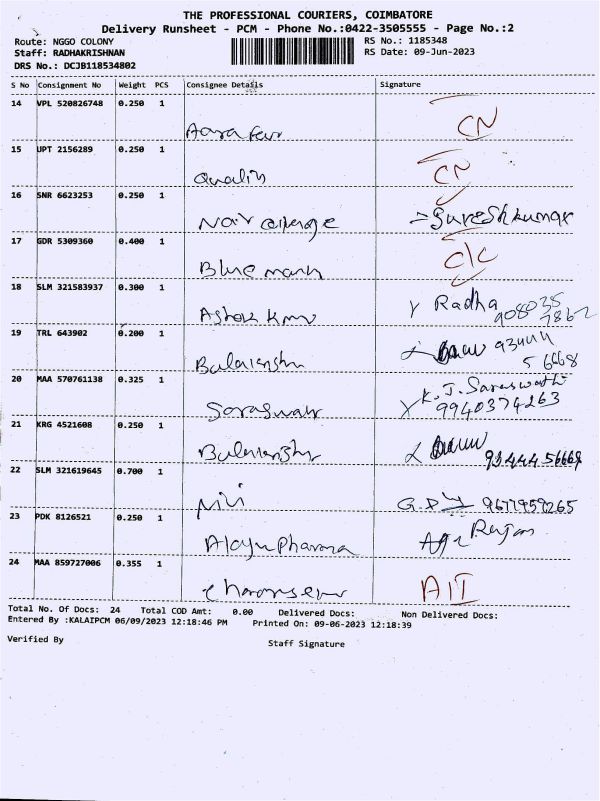 THE PROFESSIONAL COURIERS, COIMBATORE
Delivery Runsheet - PCM - Phone No.:0422-3505555 - Page No.:2
Route: NGGO COLONY RS No.: 1185348
Staff: RADHAKRISHNAN RS Date: 09-Jun-2023
DRS No.: DCJB118534802
S No Consignment No Weight PCS Consignee Details Signature
14 VPL 520826748 0.250 1
CN
15 UPT 2156289 0.250 1
CN
16 SNR 6623253 0.250 1
Nair Sureshkumar
17 GDR 5309360 0.400 1
Blue mark C/C
18 SLM 321583937 0.300 1
Ashok Kmr Radha
19 TRL 643902 0.200 1
20 MAA 570761138 0.325 1
K. J. Saraswathi
9940374263
21 KRG 4521608 0.250 1
93444 56668
22 SLM 321619645 0.700 1
9677959265
23 PDK 8126521 0.250 1
Pharma
24 MAA 859727006 0.355 1
AIT
Total No. Of Docs: 24 Total COD Amt: 0.00 Delivered Docs: Non Delivered Docs:
Entered By :KALAIPCM 06/09/2023 12:18:46 PM Printed On: 09-06-2023 12:18:39
Verified By Staff Signature